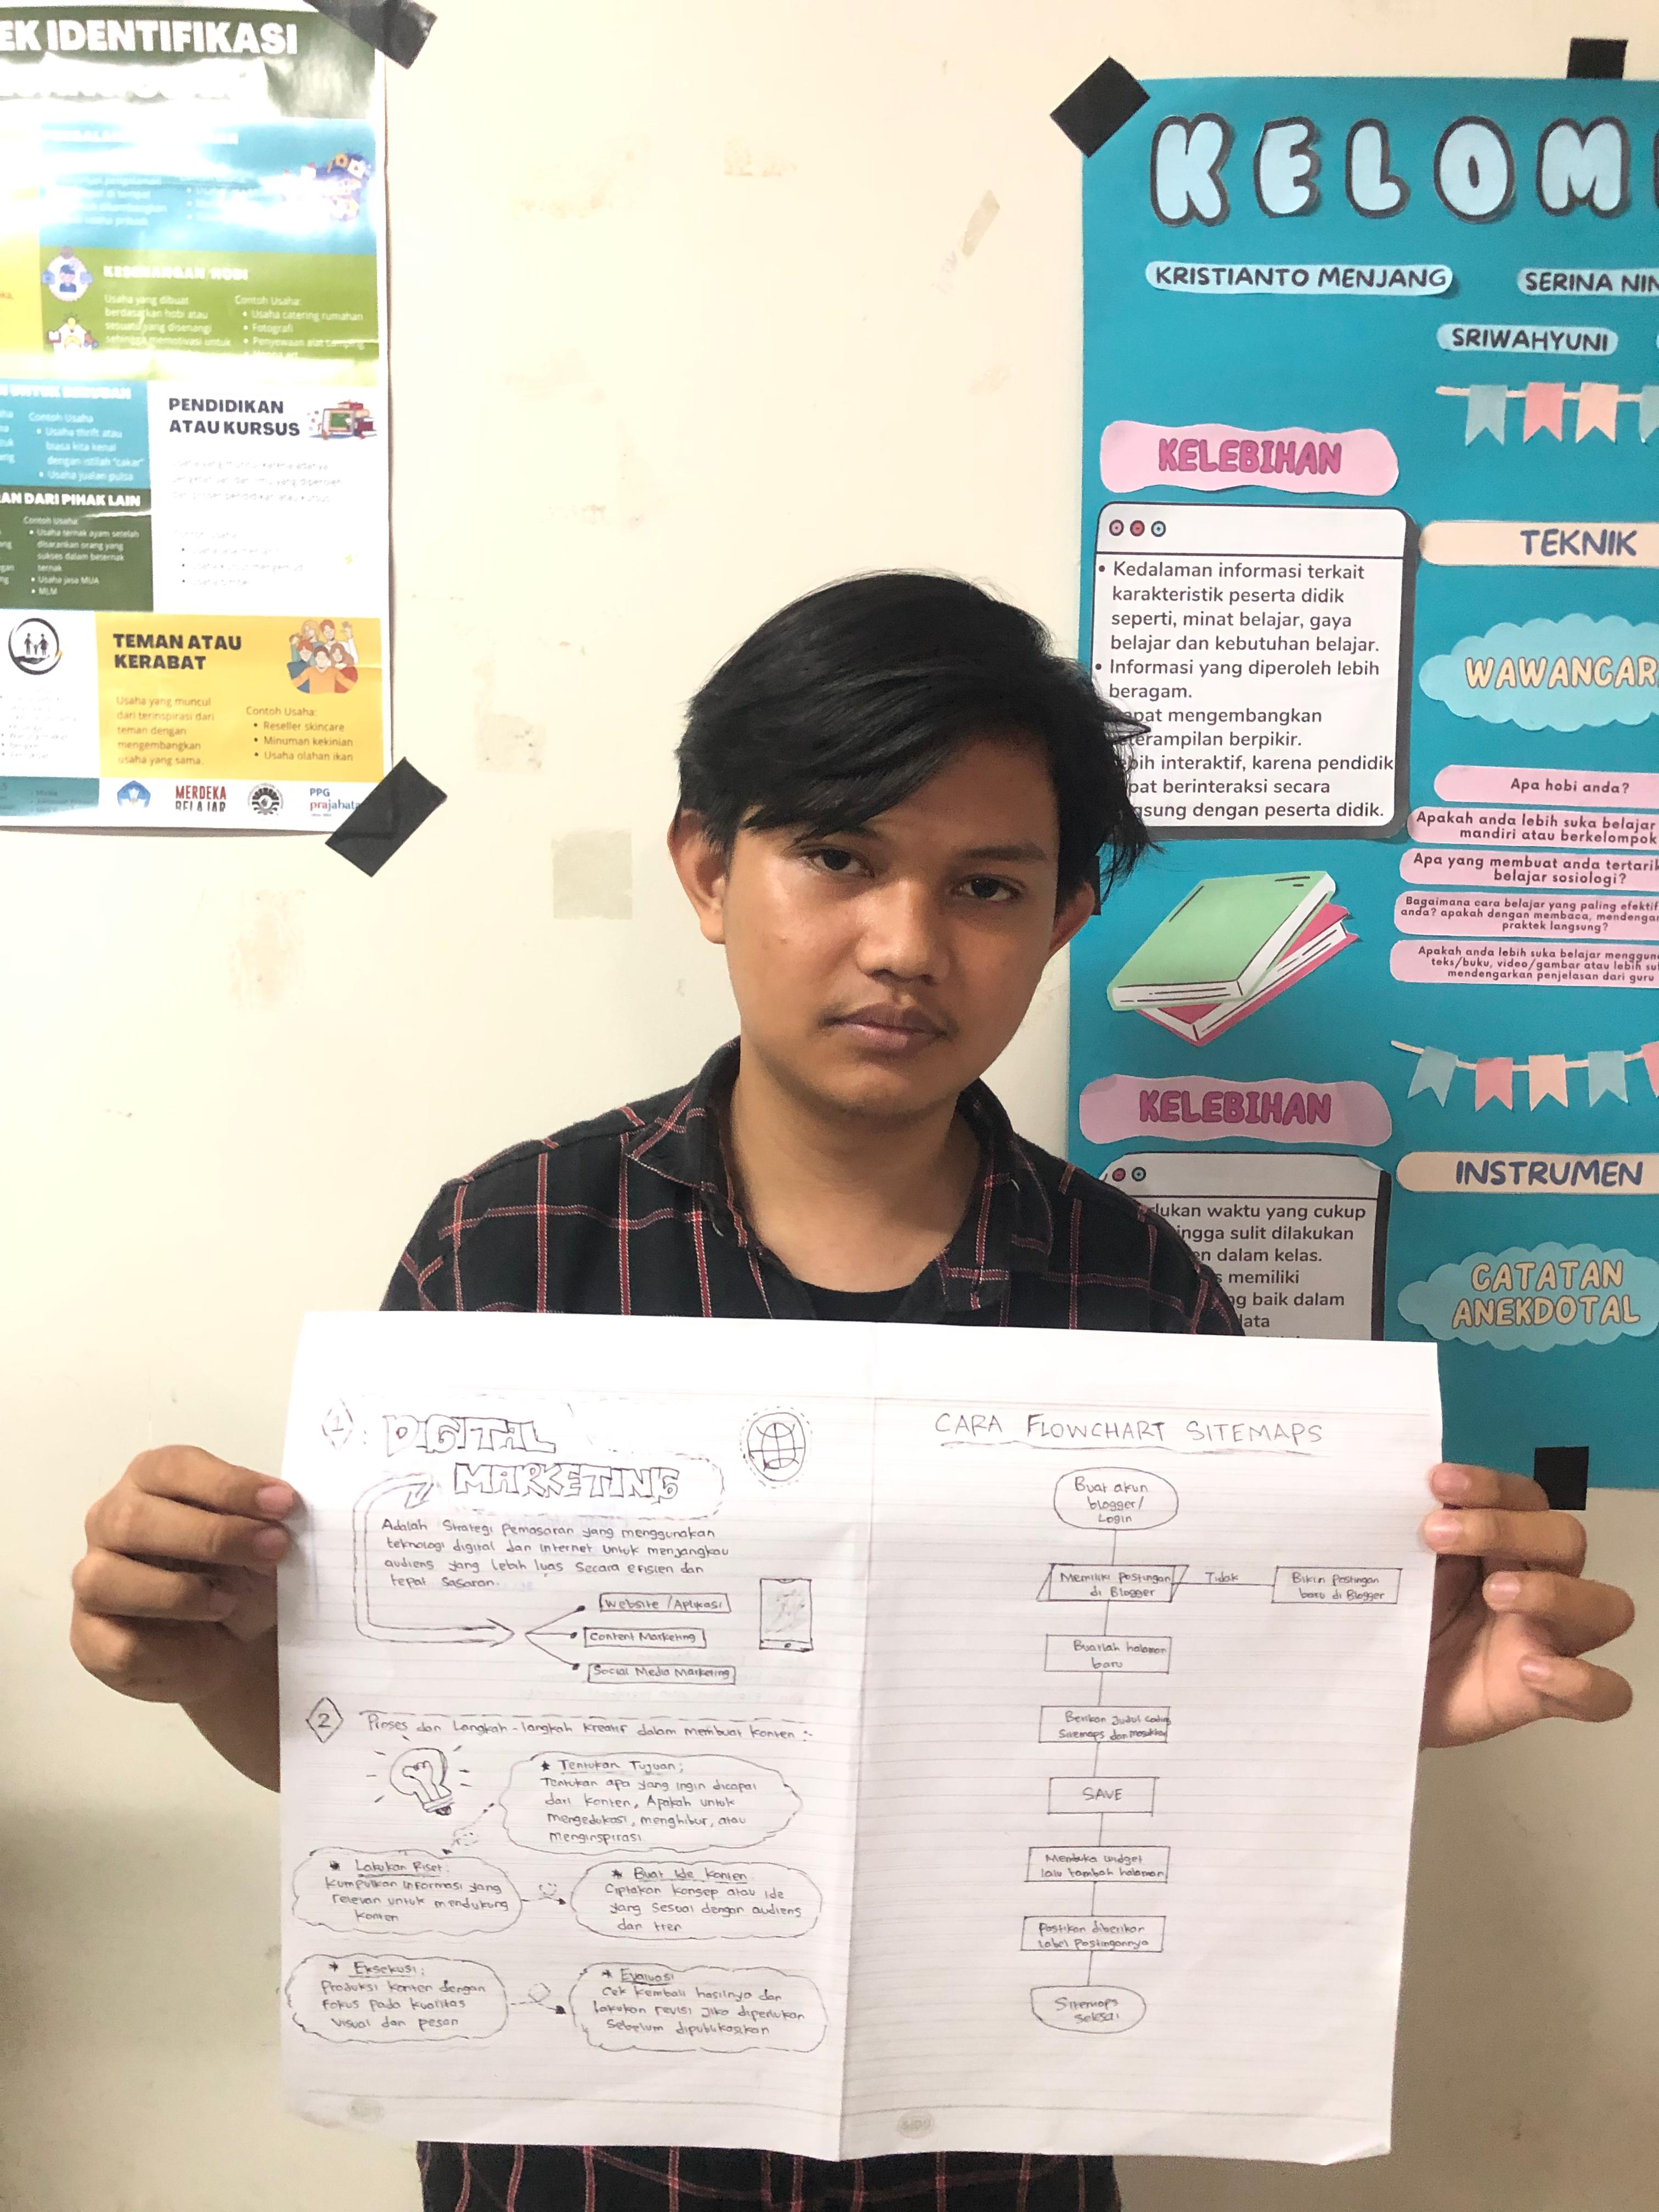 EK IDENTIFIKASI
KESENANGAN HOBI
Usaha yang dibuat
berdasarkan hobi atau
sesuatu yang disenangi
sehingga memotivasi untuk
Contoh Usaha:
• Usaha catering rumahan
• Fotografi
• Penyewaan alat camping
Contoh Usaha
• Usaha thrift atau
biasa kita kenal
dengan istilah "cakar"
• Usaha jualan pulsa
PENDIDIKAN
ATAU KURSUS
AN DARI PIHAK LAIN
Contoh Usaha:
• Usaha ternak ayam setelah
disarankan orang yang
sukses dalam beternak
ternak
• Usaha jasa MUA
• MLM
TEMAN ATAU
KERABAT
Usaha yang muncul
dari terinspirasi dari
teman dengan
mengembangkan
usaha yang sama.
Contoh Usaha:
• Reseller skincare
• Minuman kekinian
• Usaha olahan ikan
MERDEKA
BELAJAR
PPG
prajabata
KELOM
KRISTIANTO MENJANG
SERINA NIN
SRIWAHYUNI
KELEBIHAN
• Kedalaman informasi terkait
karakteristik peserta didik
seperti, minat belajar, gaya
belajar dan kebutuhan belajar.
• Informasi yang diperoleh lebih
beragam.
apat mengembangkan
terampilan berpikir.
bih interaktif, karena pendidik
pat berinteraksi secara
gsung dengan peserta didik.
TEKNIK
WAWANCAR
Apa hobi anda?
Apakah anda lebih suka belajar
mandiri atau berkelompok
Apa yang membuat anda tertarik
belajar sosiologi?
Bagaimana cara belajar yang paling efektif
anda? apakah dengan membaca, mendengar
praktek langsung?
Apakah anda lebih suka belajar menggun
teks/buku, video/gambar atau lebih su
mendengarkan penjelasan dari guru
KELEBIHAN
lukan waktu yang cukup
ingga sulit dilakukan
en dalam kelas.
s memiliki
ng baik dalam
data
INSTRUMEN
CATATAN
ANEKDOTAL
1. DIGITAL
MARKETING
Adalah Strategi Pemasaran yang menggunakan
teknologi digital dan internet untuk menjangkau
audiens yang lebih luas secara efisien dan
tepat sasaran.
Website / Aplikasi
Content Marketing
Social Media Marketing
2 Proses dan Langkah-langkah kreatif dalam membuat konten :-
* Tentukan Tujuan;
Tentukan apa yang ingin dicapai
dari konten, Apakah untuk
mengedukasi, menghibur, atau
menginspirasi
* Lakukan Riset:
kumpulkan informasi yang
relevan untuk mendukung
konten
* Buat Ide Konten
Ciptakan konsep atau ide
yang sesuai dengan audiens
dan tren
* Eksekusi;
Produksi konten dengan
fokus pada kualitas
visual dan pesan
* Evaluasi
Cek kembali hasilnya dan
lakukan revisi jika diperlukan
sebelum dipublikasikan
CARA FLOWCHART SITEMAPS
Buat akun
blogger/
Login
Memiliki Postingan
di Blogger
Tidak
Bikin Postingan
baru di Blogger
Buatlah halaman
baru
Berikan Judul coding
Sitemaps dan masukkan
SAVE
Membuka widget
lalu tambah halaman
Pastikan diberikan
Label Postingannya
Sitemaps
selesai